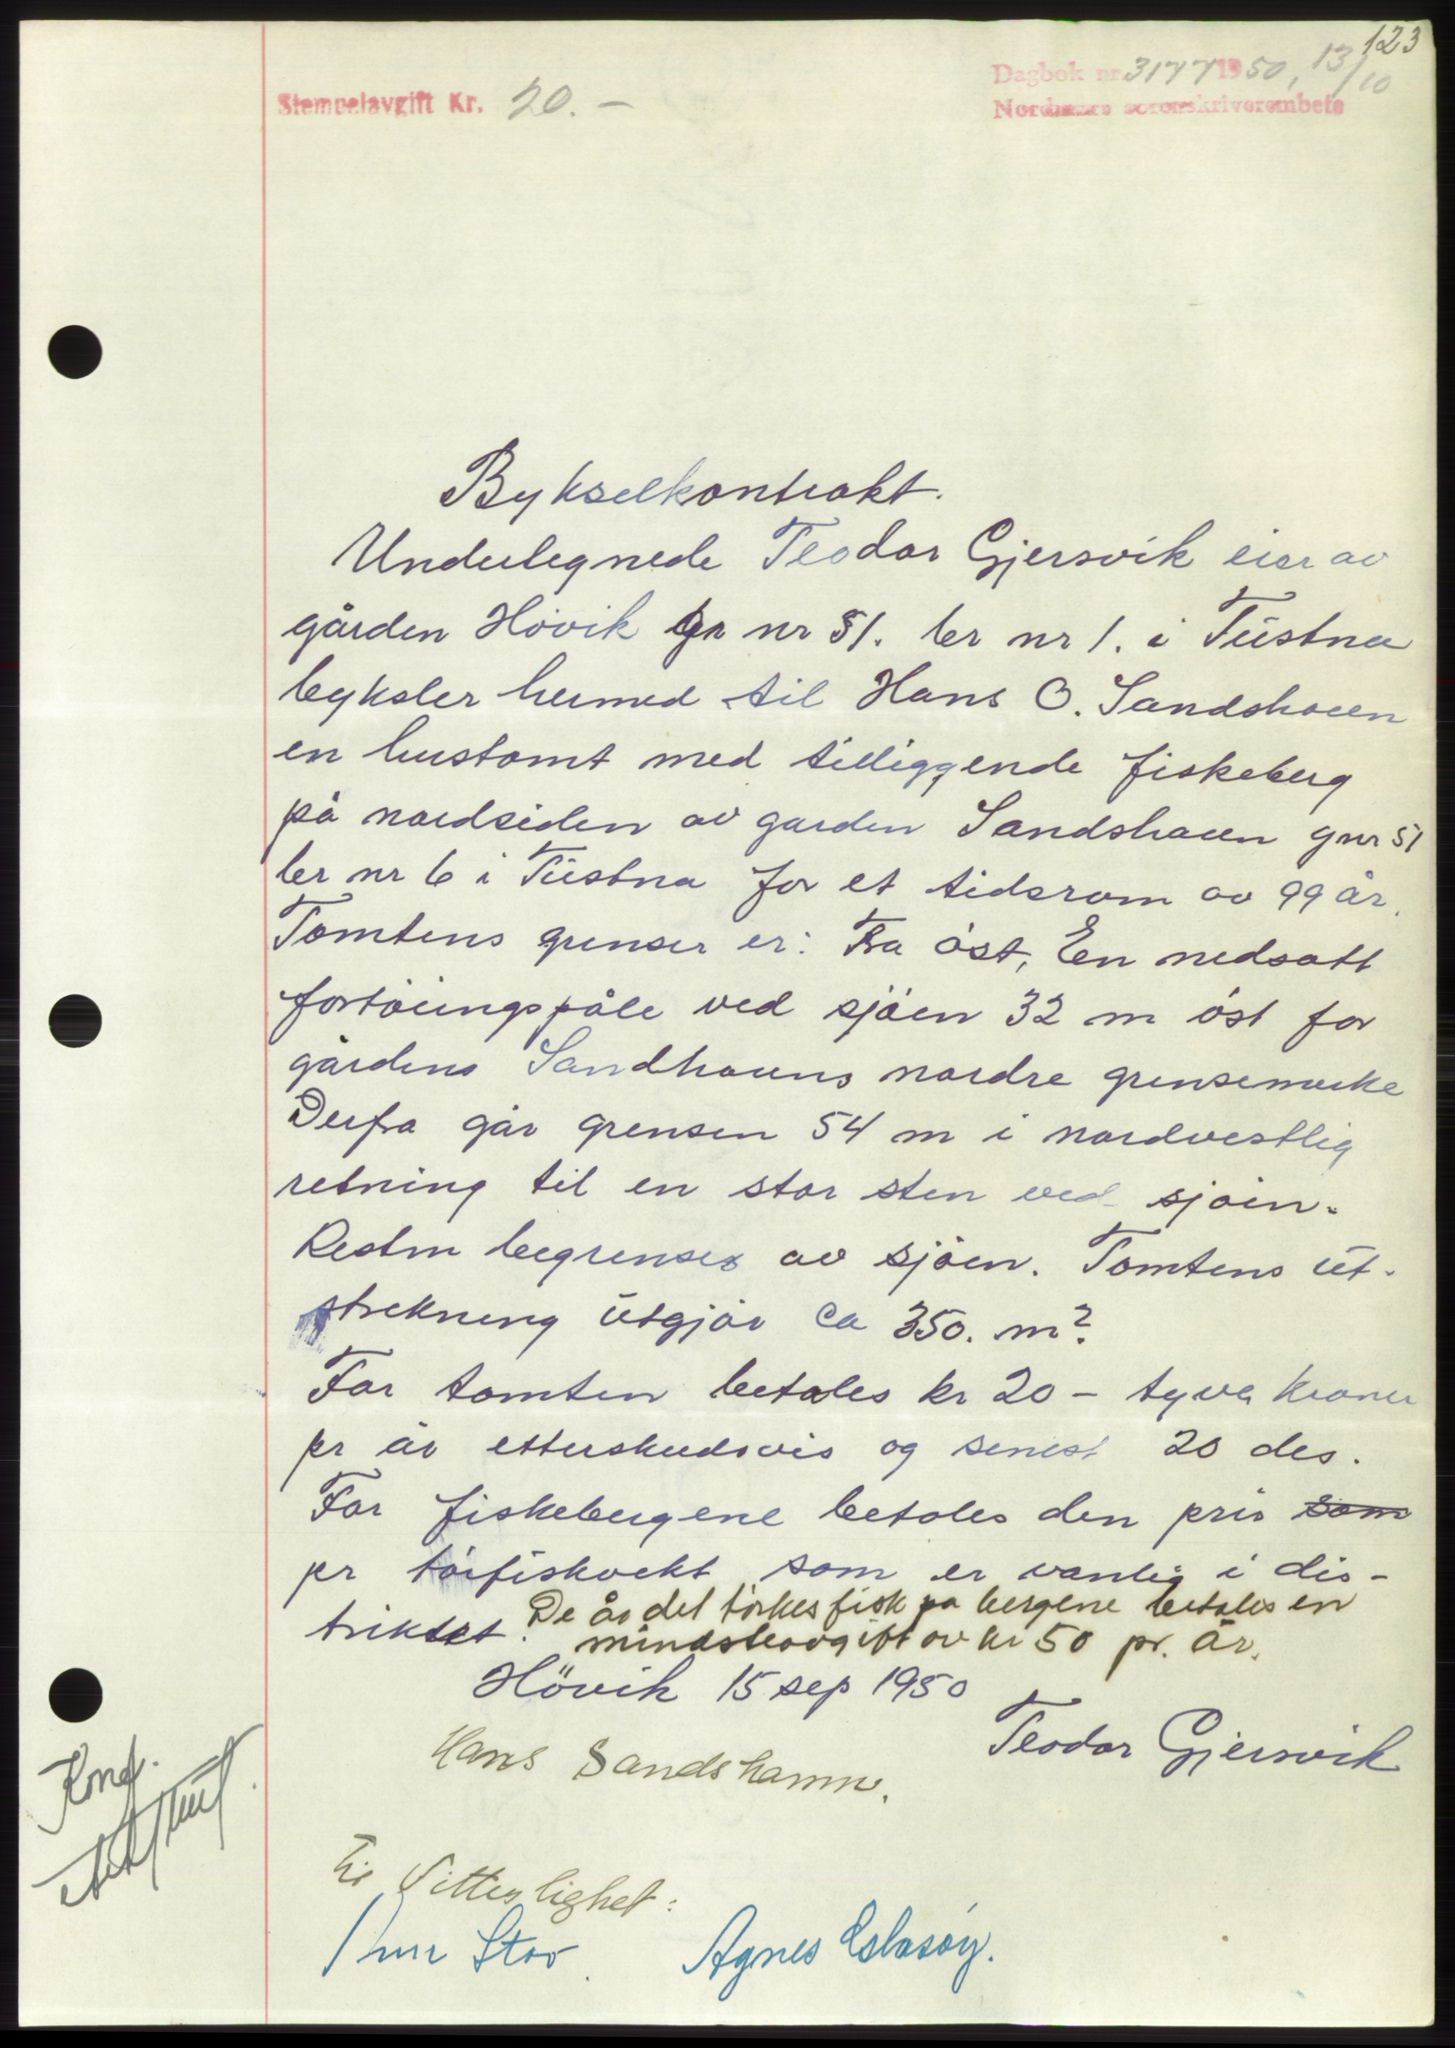 123
Dagbok nr. 3177 1950, 13/10
Stempelavgift Kr. 20.-
Nordmøre sorenskriverembete
Bykselkontrakt.
Undertegnede Teodor Gjersvik eier av
gården Hövik gr nr 51. br nr 1. i Tüstna
byksler hermed til Hans O. Sandshavn
en hustomt med tilliggende fiskeberg
på nordsiden av garden Sandshavn gnr 51
br nr 6 i Tüstna for et tidsrom av 99 år.
Tomtens grenser er: Fra öst, En nedsatt
fortöiingspåle ved sjöen 32 m öst for
gårdens Sandhavns nordre grensemerke
Derfra går grensen 54 m i nordvestlig
retning til en stor sten ved sjöen.
Resten begrenses av sjöen. Tomtens üt-
strekning ütgjör ca 350. m².
For tomten betales kr 20 - tyve kroner
pr år etterskudsvis og senest 20 des.
For fiskebergene betales den pris som
pr törfiskvekt som er vanlig i dis-
triktet. De år det törkes fisk pa bergene betales en
mindsteavgift av kr 50 pr. år.
Hövik 15 sep 1950
Teodor Gjersvik
Hans Sandshamn.
Konf.
Til Vitterlighet:
Stor. Agnes Eslasöy.